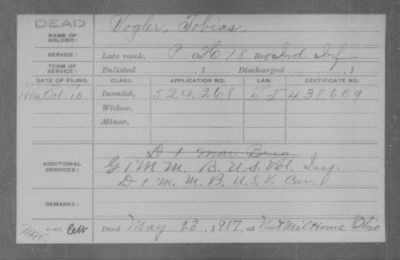 DEAD
NAME OF SOLDIER:
Vogler, Tobias,
SERVICE:
Late rank, P Co. H, 18 Reg. Ind Inf
TERM OF SERVICE:
Enlisted , 1 Discharged , 1
DATE OF FILING. CLASS. APPLICATION NO. LAW. CERTIFICATE NO.
Oct. 10 Invalid, 524,268 438,609
Widow,
Minor,
ADDITIONAL SERVICES:
D 1 Mar Brig
G 1 M M. B. U.S. Vol. Inf.
D 1 M. M. B. U.S. V. Cav.
REMARKS:
Died May 23, 1917, at Nat Mil Home Ohio